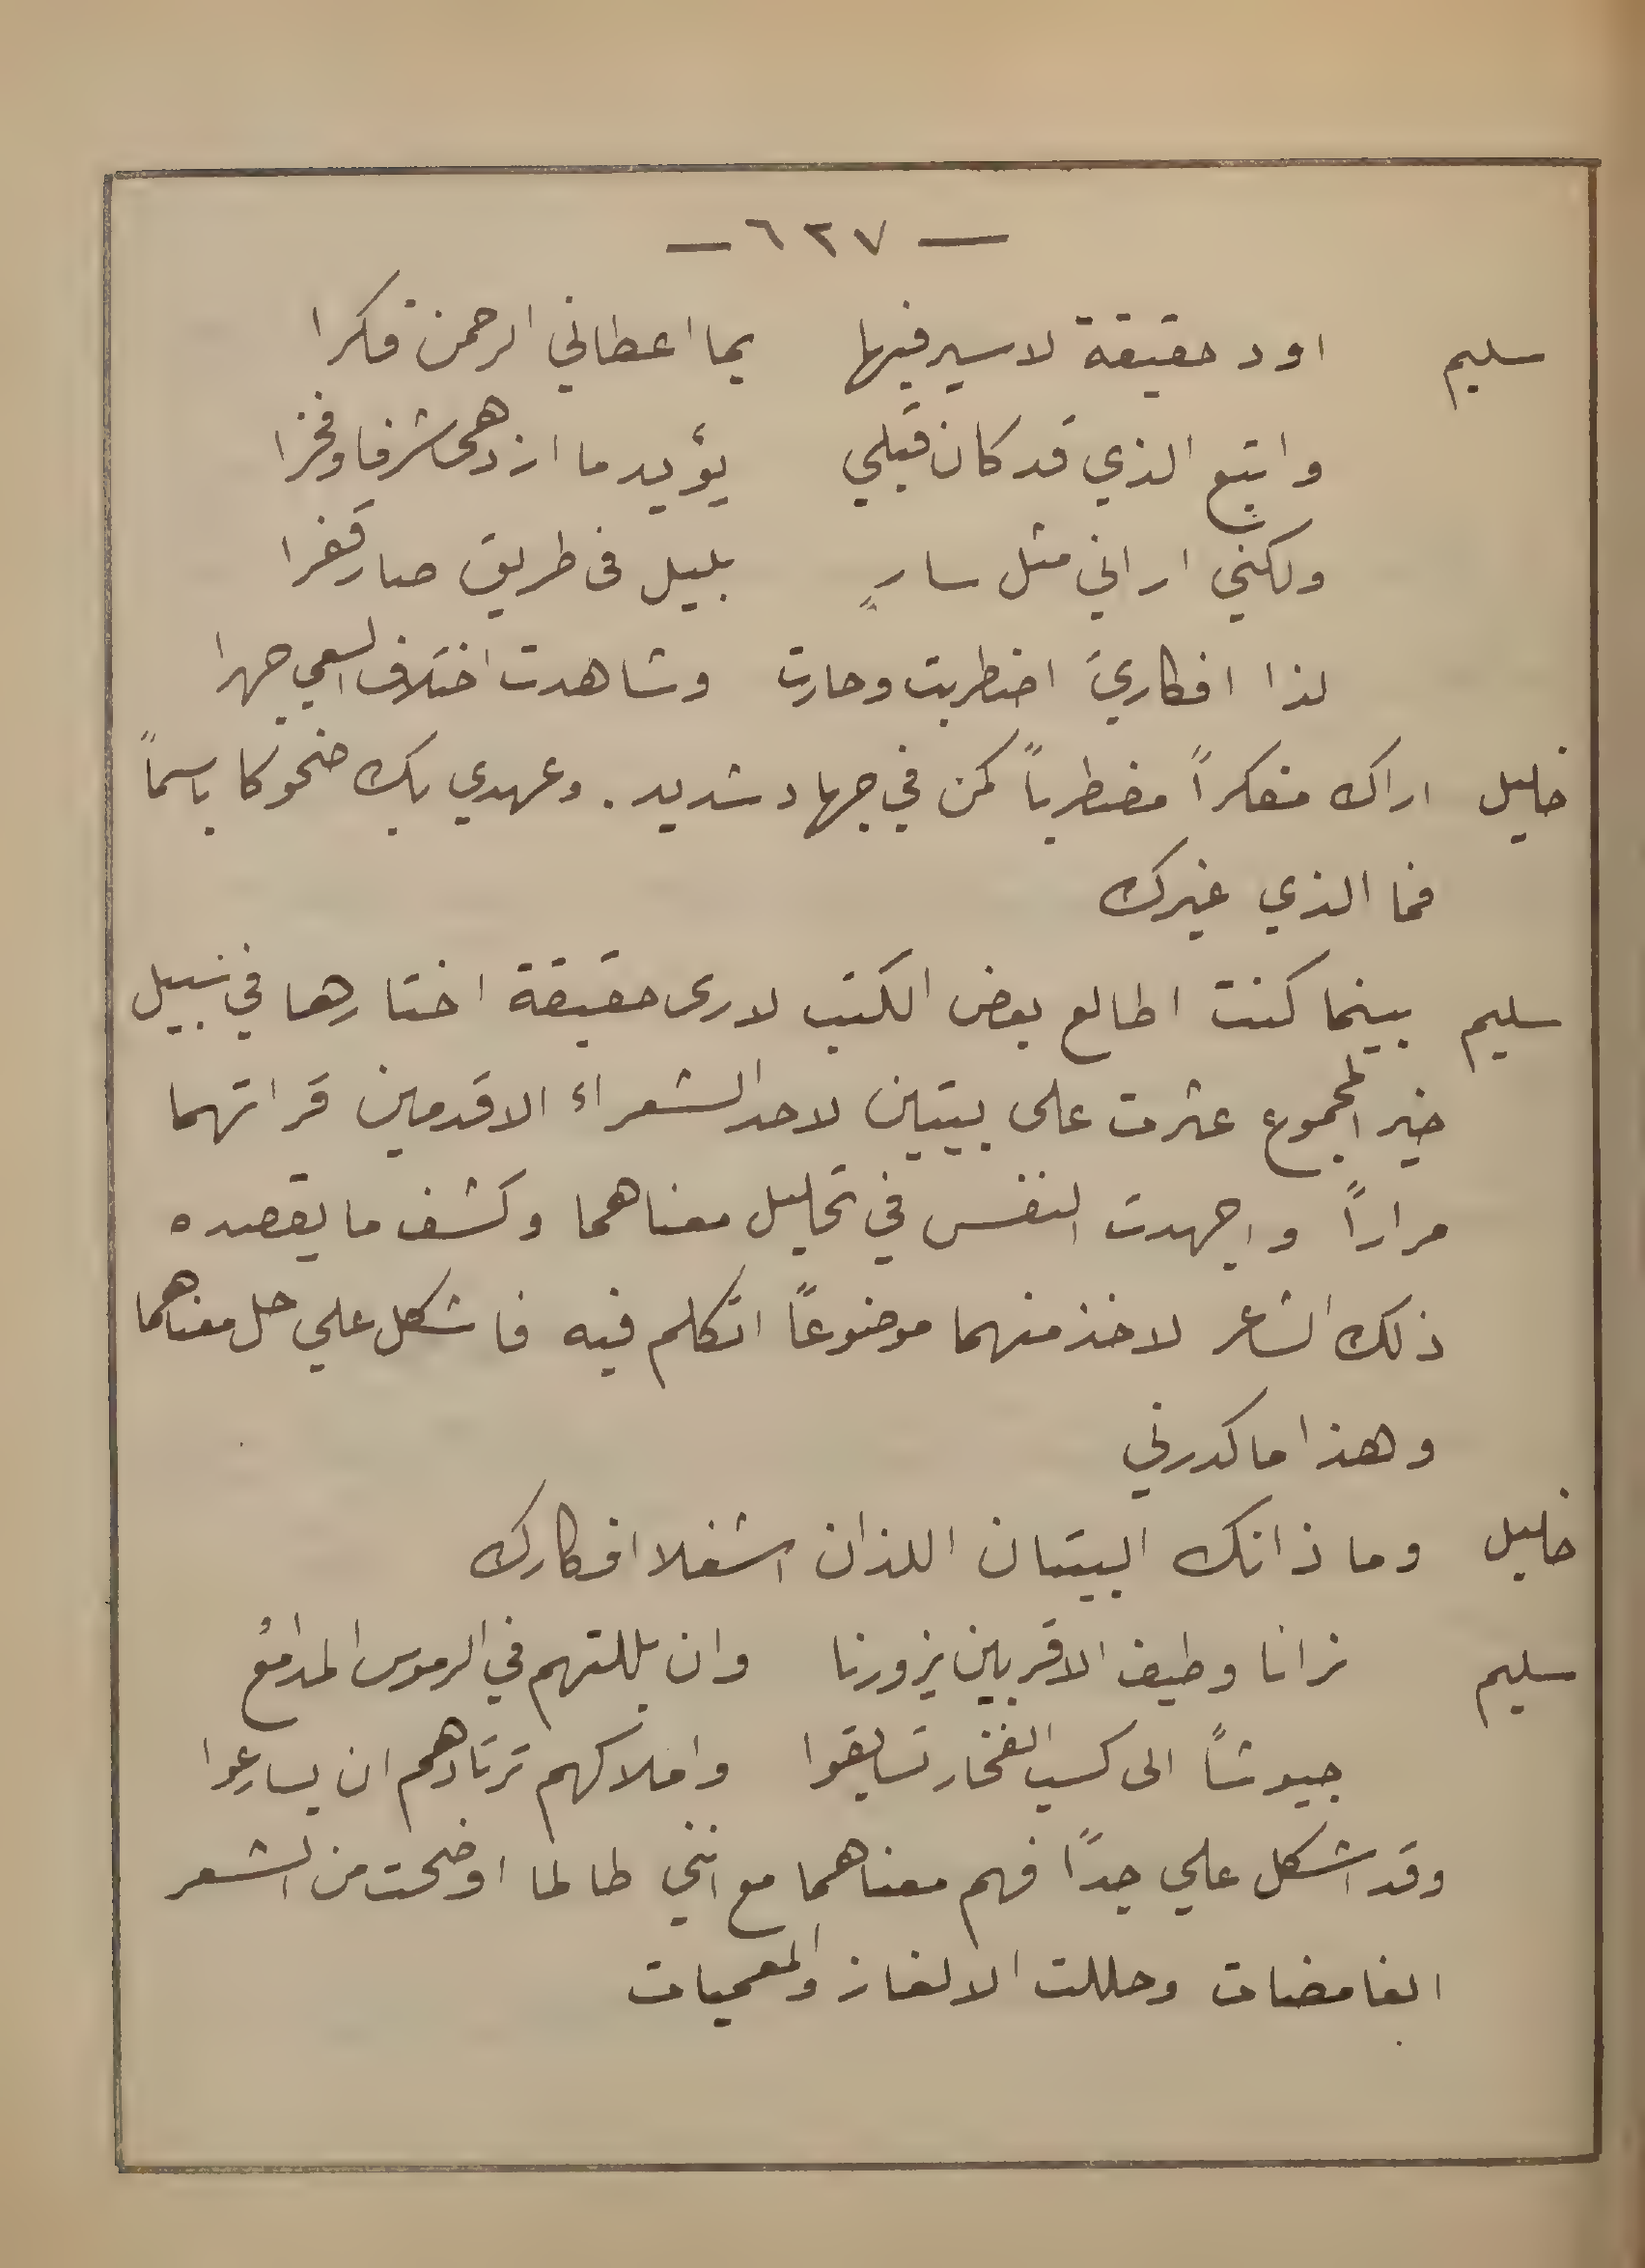 — ٦٢٧ —
سليم اود حقيقة لاسير فيها بما اعطاني الرحمن فكرا
واتبع الذي قد كان قبلي يؤيد ما ازدهى شرفا وفخرا
ولكني اراني مثل سارٍ بليل في طريق صار قفرا
لذا افكاريَ اضطربت وحارت وشاهدت اختلاف السعي جهرا
خليل اراك مفكراً مضطرباً كمن في جهاد شديد . وعهدي بك ضحوكا باسماً
فما الذي غيرك
سليم بينما كنت اطالع بعض الكتب لارى حقيقة اختارها في سبيل
خير المجموع عثرت على بيتين لاحد الشعراء الاقدمين قراتهما
مراراً واجهدت النفس في تحليل معناهما وكشف ما يقصده
ذلك الشاعر لاخذ منهما موضوعاً اتكلم فيه فاشكل علي حل معناهما
وهذا ما كدرني
خليل وما ذانك البيتان اللذان اشغلا افكارك
سليم نرانا وطيف الاقربين يزورنا وان بللتهم في الرموس المدامعُ
جيوشاً الى كسب الفخار تسابقوا واملاكهم ترتادهم ان يسارعوا
وقد اشكل علي جداً فهم معناهما مع انني طالما اوضحت من الشعر
الغامضات وحللت الالغاز والمعميات